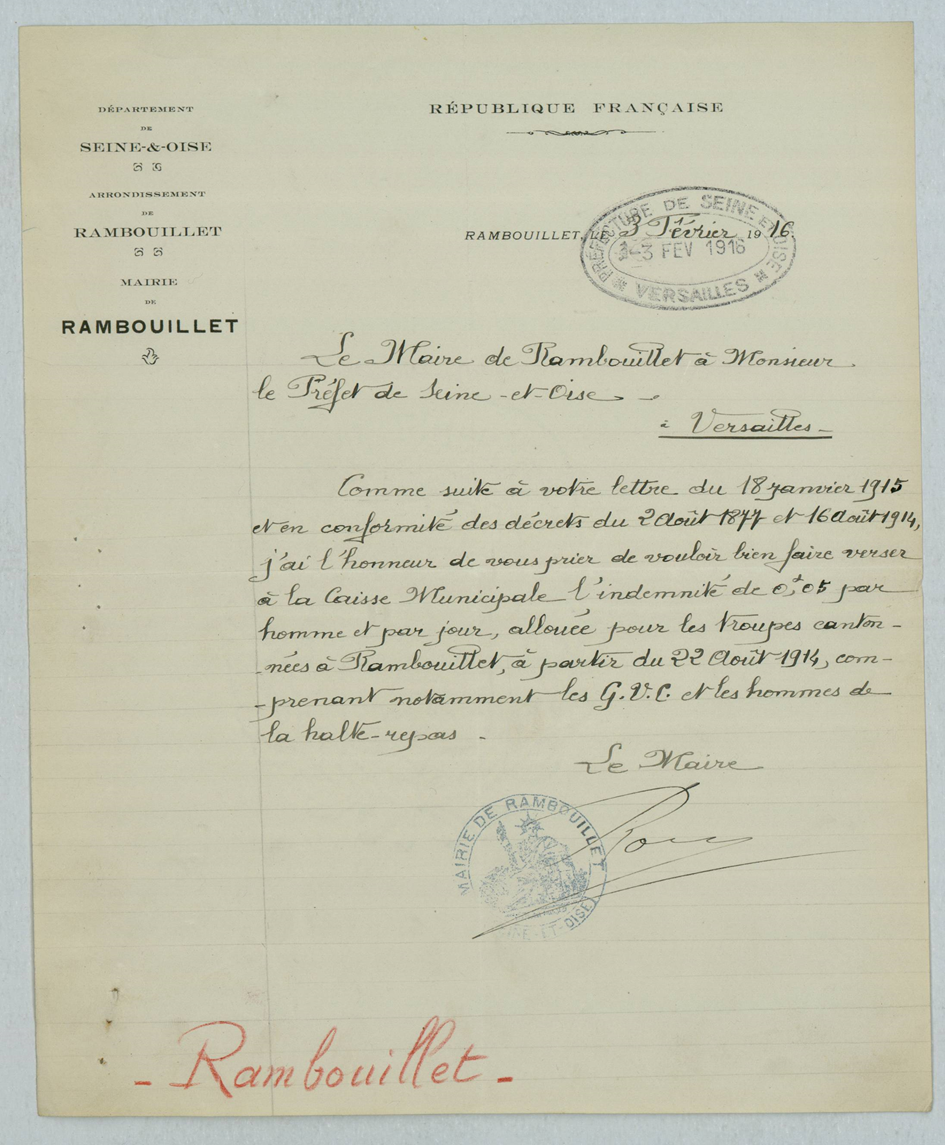 DÉPARTEMENT
DE
SEINE-&-OISE
ARRONDISSEMENT
DE
RAMBOUILLET
MAIRIE
DE
RAMBOUILLET
RÉPUBLIQUE FRANÇAISE
RAMBOUILLET, LE 3 Février 1916.
PRÉFECTURE DE SEINE ET OISE
3 FEV 1916
VERSAILLES
Le Maire de Rambouillet à Monsieur
le Préfet de Seine-et-Oise
à Versailles-
Comme suite à votre lettre du 18 janvier 1915
et en conformité des décrets du 2 Août 1877 et 16 Août 1914,
j'ai l'honneur de vous prier de vouloir bien faire verser
à la Caisse Municipale l'indemnité de 0,f05 par
homme et par jour, allouée pour les troupes canton-
-nées à Rambouillet, à partir du 22 Août 1914, com-
-prenant notamment les G.V.C. et les hommes de
la halte-repas -
Le Maire
MAIRIE DE RAMBOUILLET
ET-OISE
- Rambouillet -